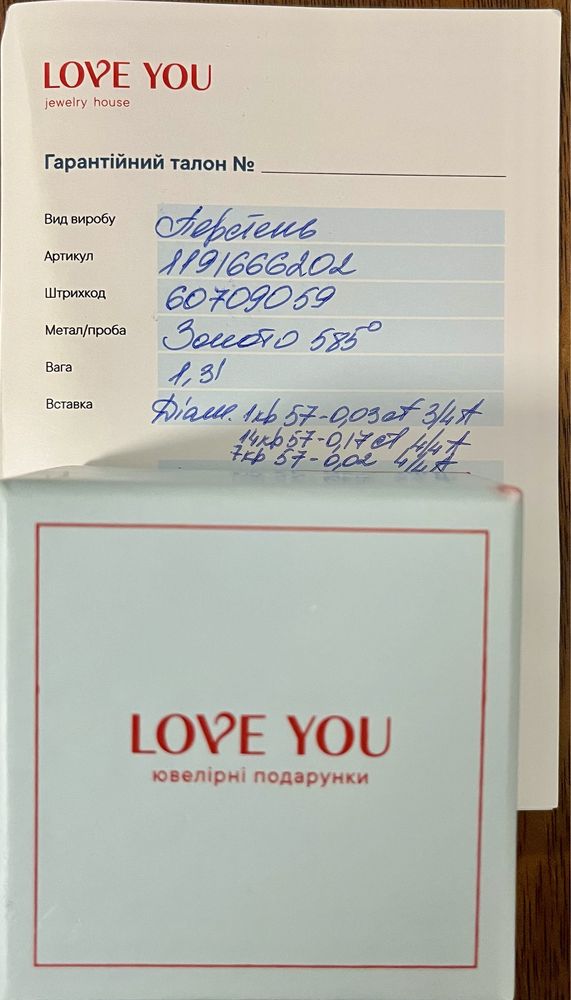 LOVE YOU
jewelry house
Гарантійний талон №
Вид виробу Перстень
Артикул 1191666202
Штрихкод 60709059
Метал/проба Золото 585°
Вага 1,31
Вставка Діам. 1кр 57-0,03ct 3/4 А
14кр 57-0,17ct 4/4 А
7кр 57-0,02 4/4 А
LOVE YOU
ювелірні подарунки